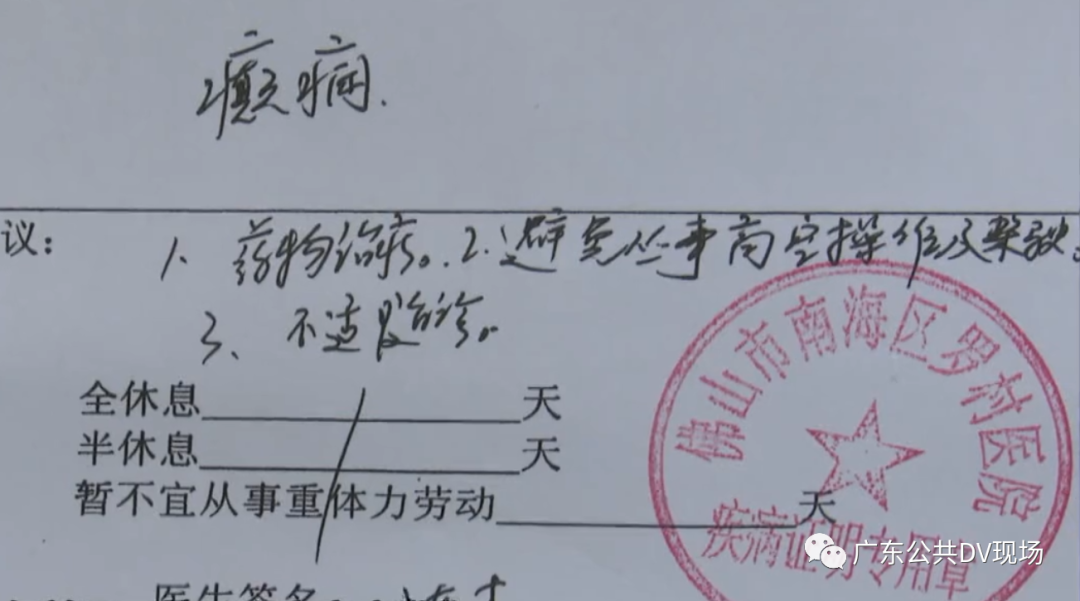 癫痫.
议: 1. 药物治疗。2. 避免从事高空操作及驾驶。
3、不适随诊。
全休息 天
半休息 天
暂不宜从事重体力劳动 天
佛山市南海区罗村医院
疾病证明专用章
医生签名
广东公共DV现场